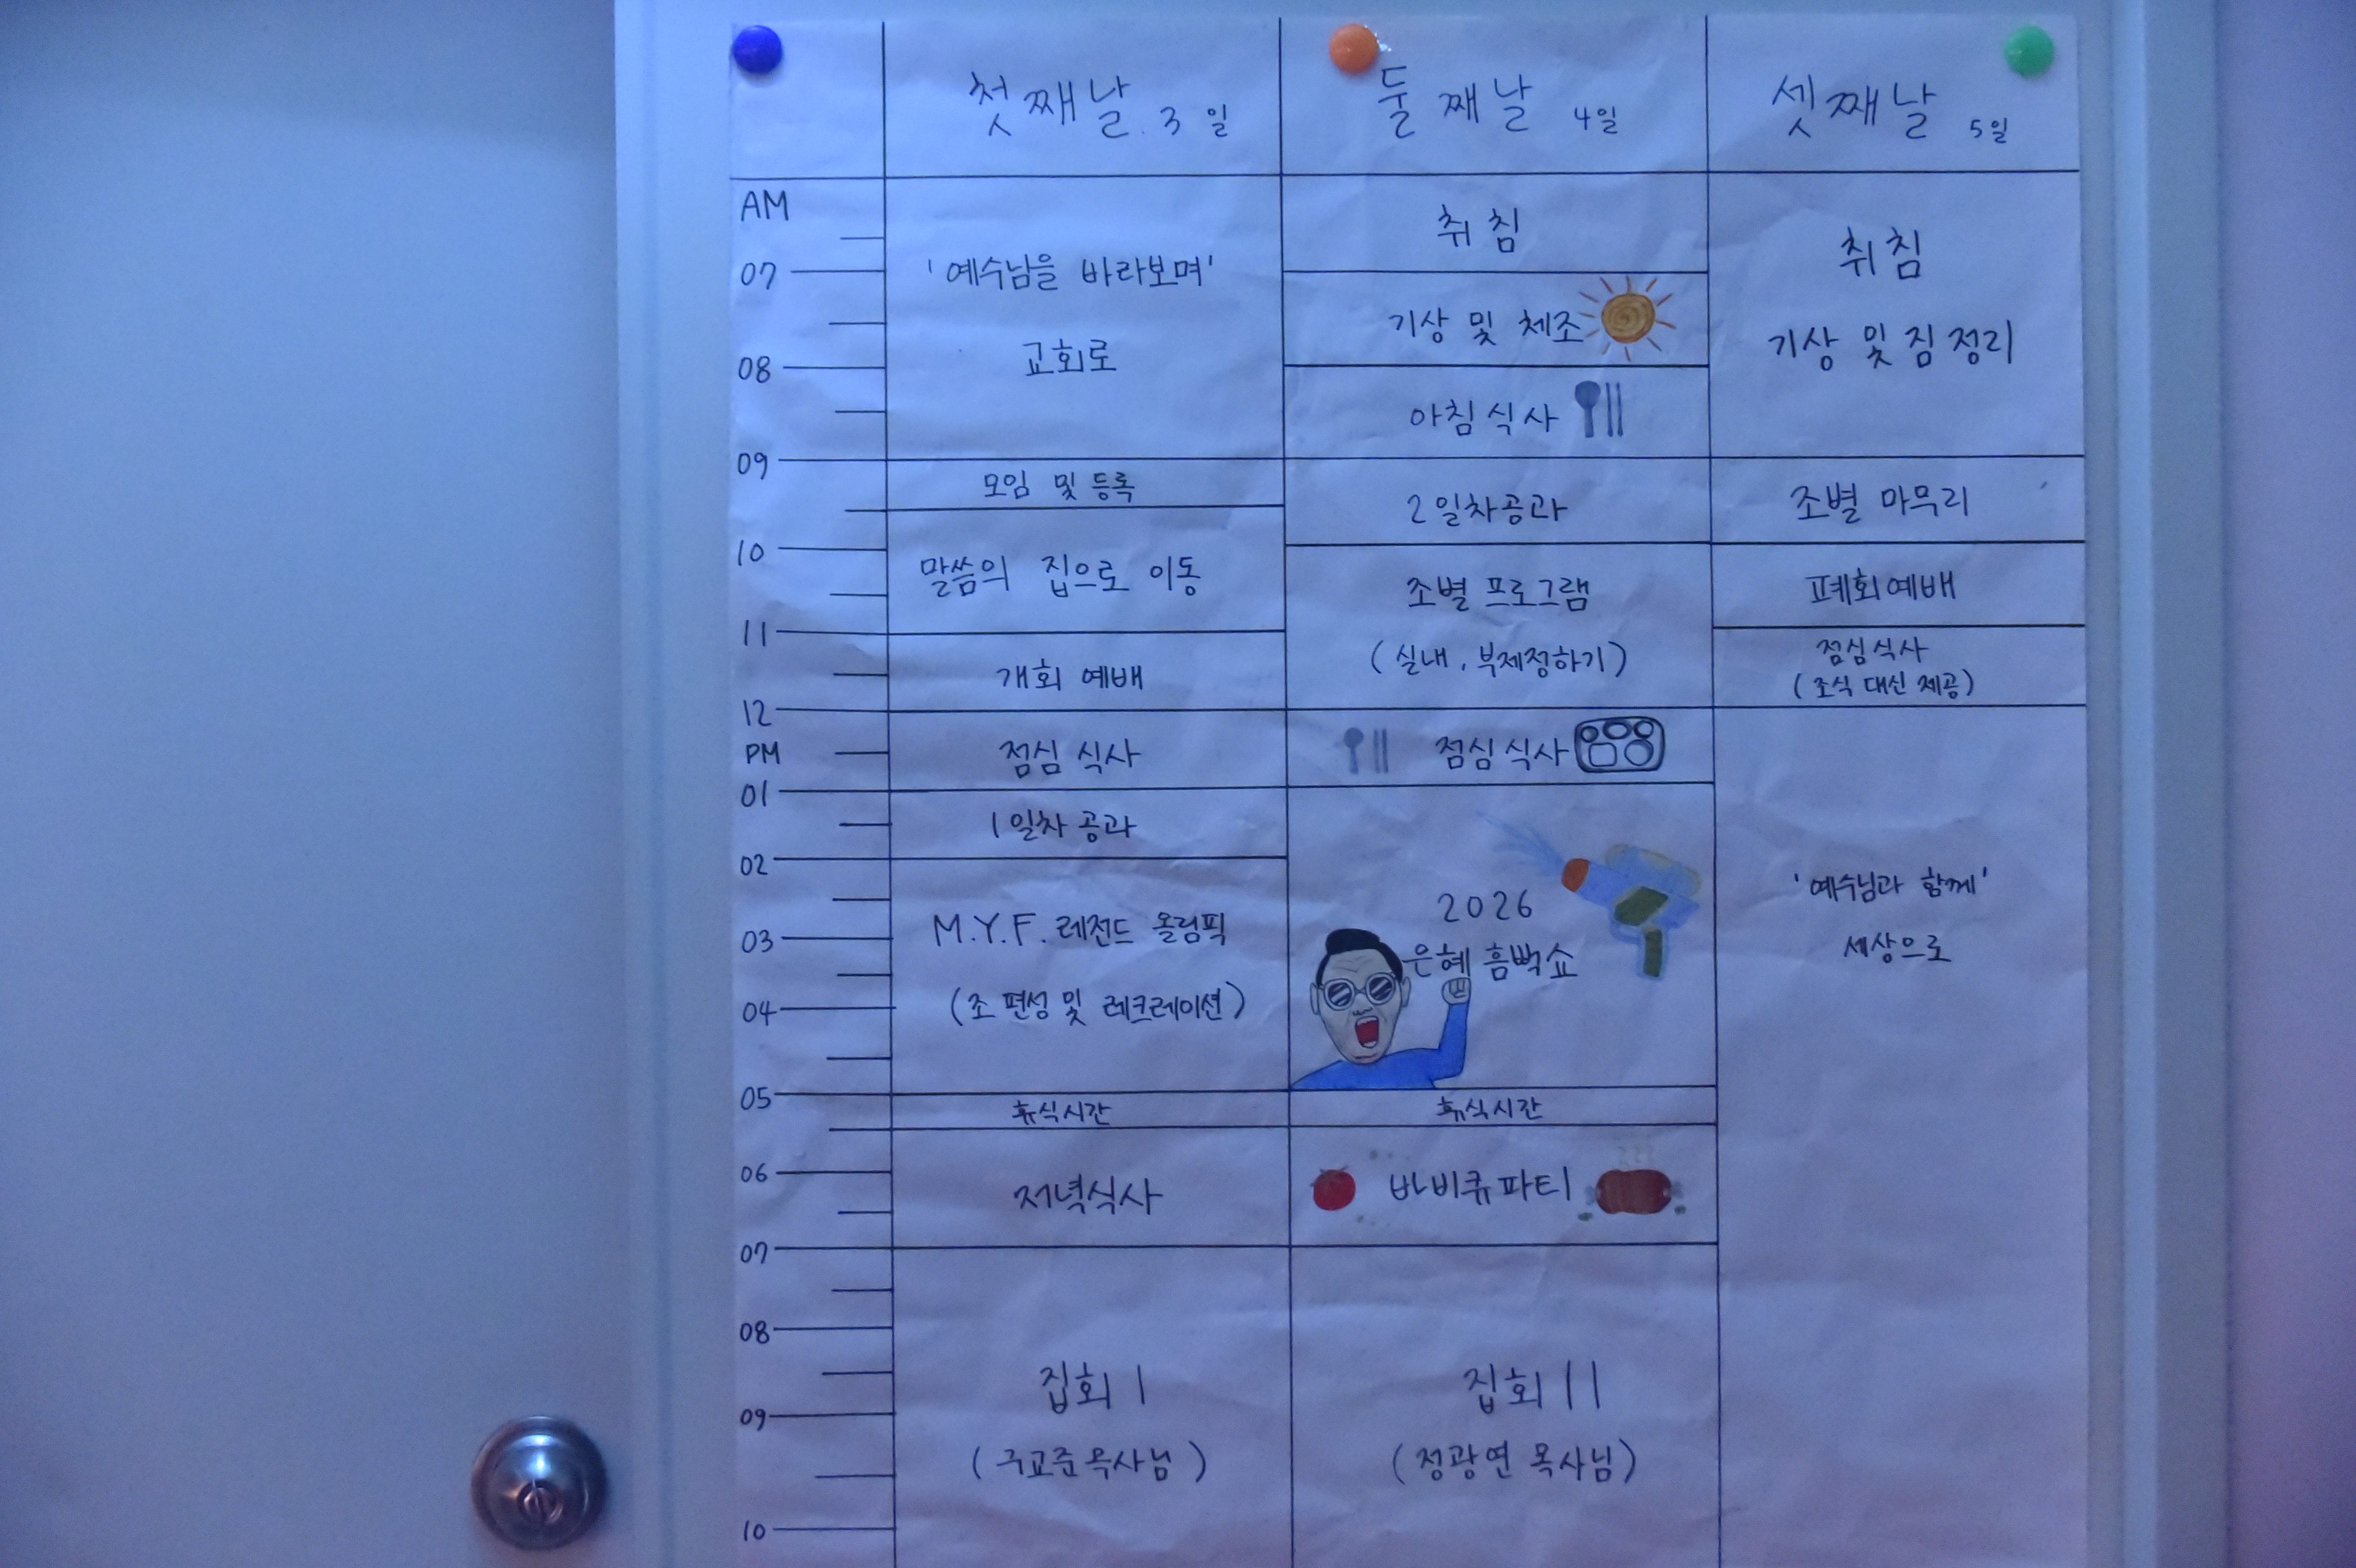 첫째날. 3일
둘째날 4일
셋째날 5일
AM
07
08
09
10
11
12
PM
01
02
03
04
05
06
07
08
09
10
'예수님을 바라보며'
교회로
모임 및 등록
말씀의 집으로 이동
개회 예배
점심 식사
1일차 공과
M.Y.F. 레전드 올림픽
(조 편성 및 레크레이션)
휴식시간
저녁식사
집회 I
(구교준목사님)
취침
기상 및 체조
아침식사
2일차공과
조별 프로그램
(실내, 부제정하기)
점심식사
2026
은혜 흠뻑쇼
휴식시간
바비큐파티
집회 II
(정광연 목사님)
취침
기상 및 짐정리
조별 마무리
폐회예배
점심식사
(조식 대신 제공)
'예수님과 함께'
세상으로